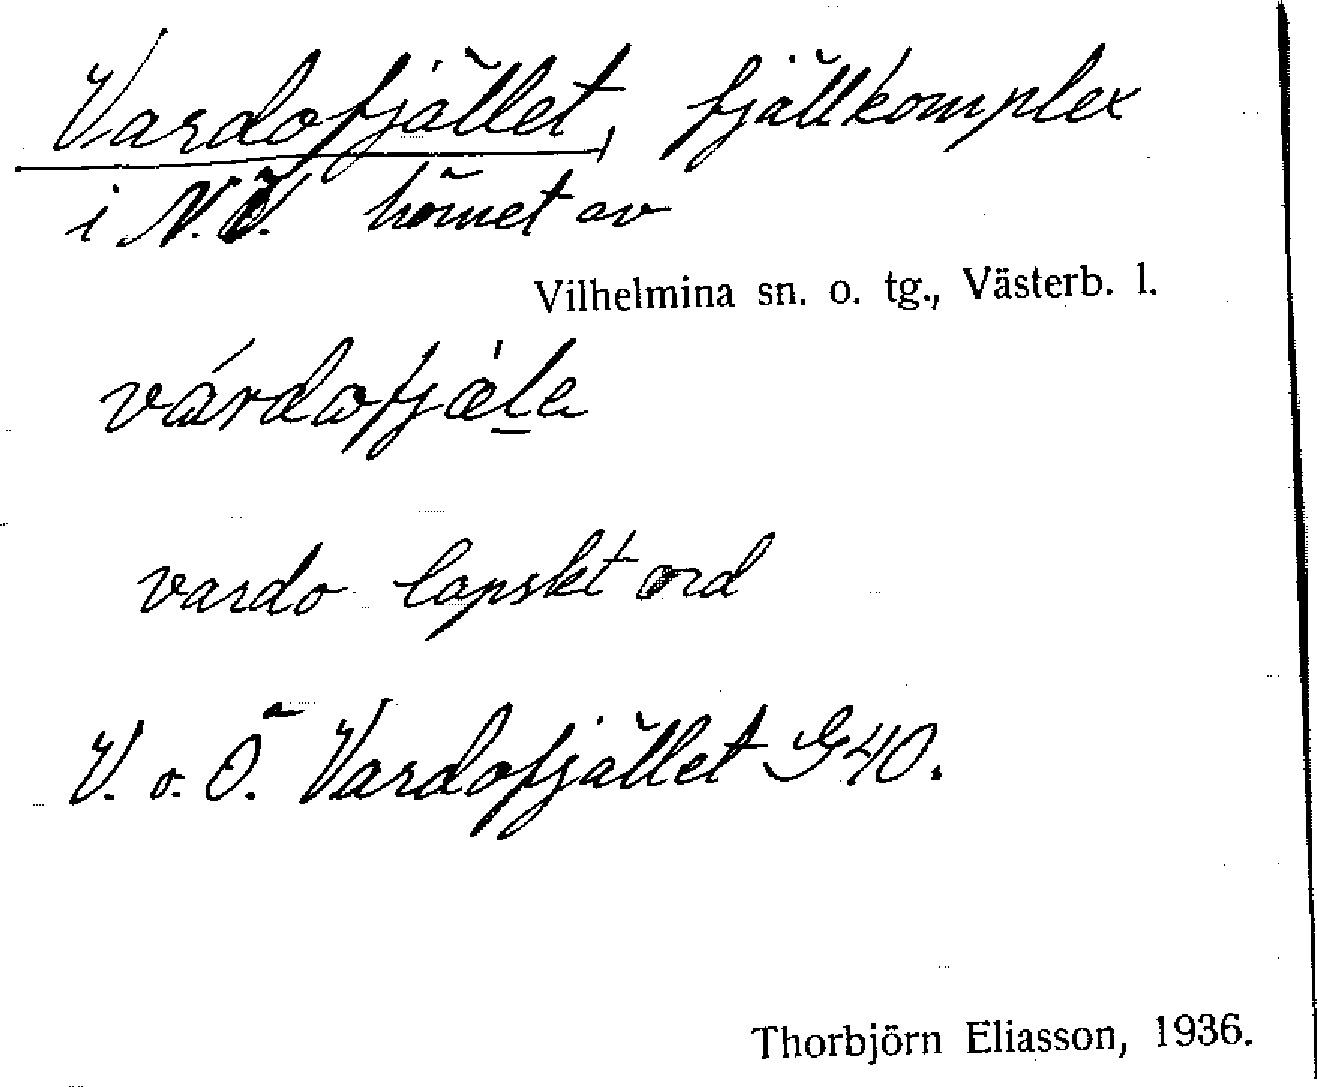 Vardofjället, fjällkomplex
i N.Ö. hörnet av
Vilhelmina sn. o. tg., Västerb. l.
várdofjæla
vardo lapskt ord
V. o. Ö. Vardofjället G40.
Thorbjörn Eliasson, 1936.